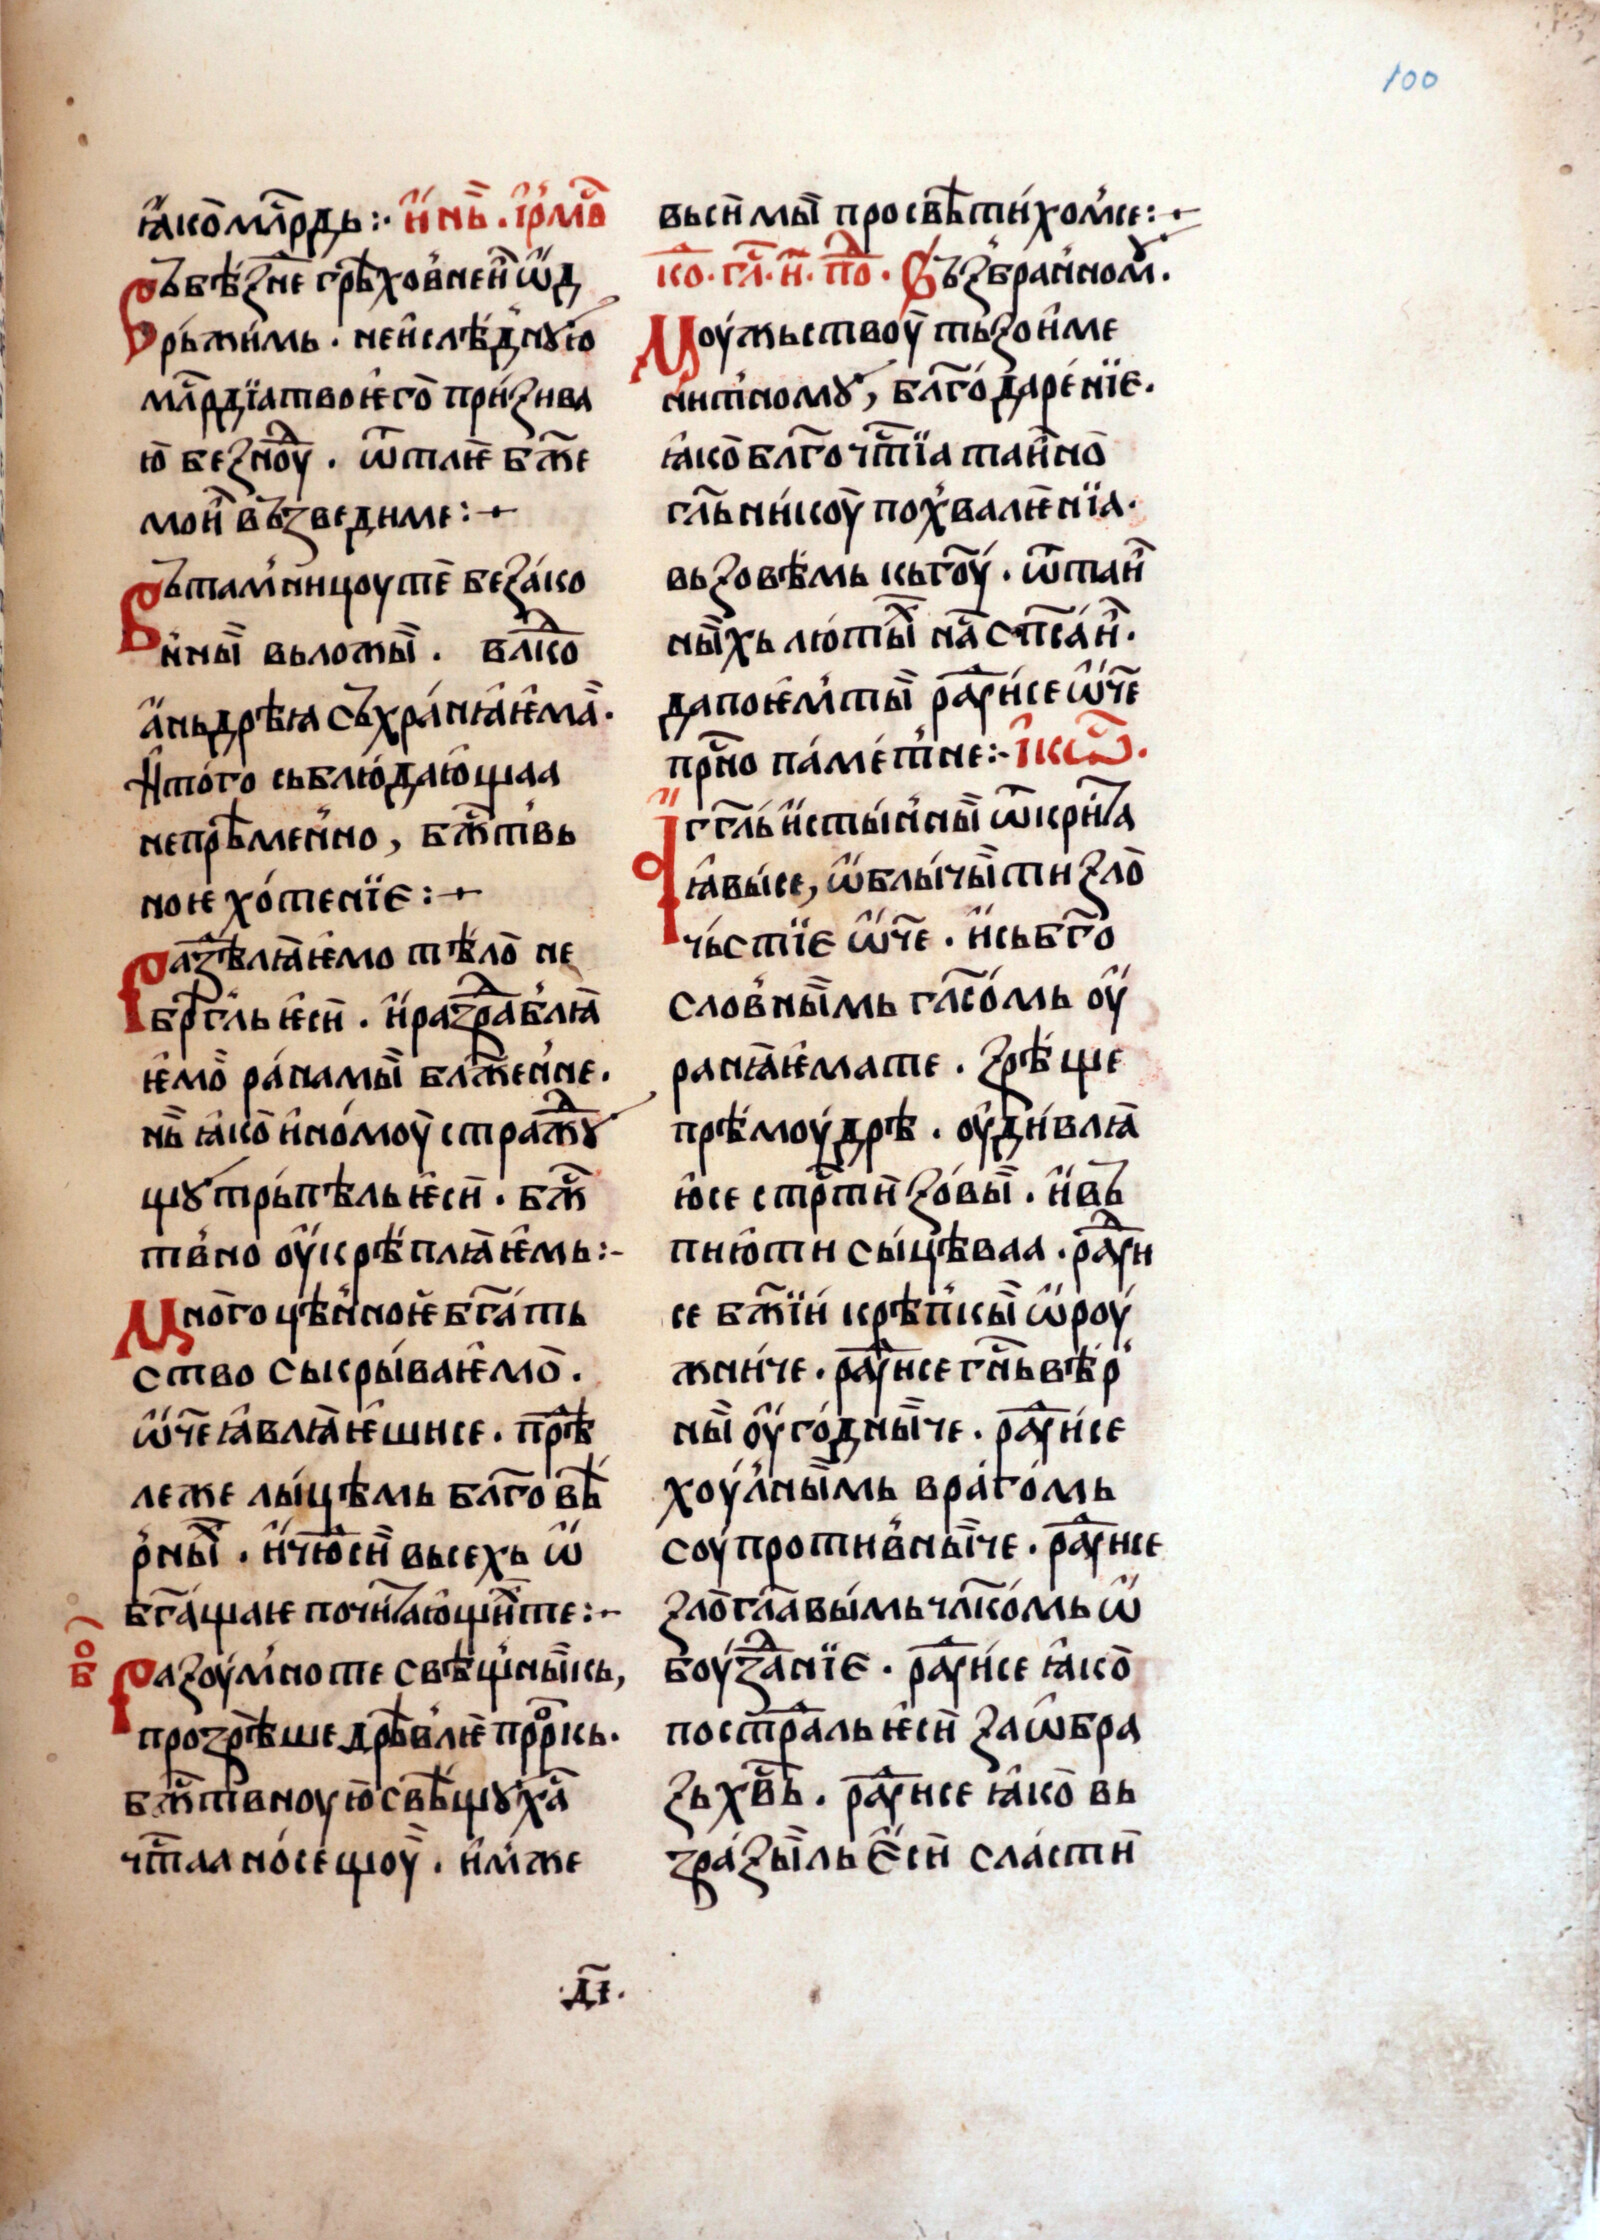 100
ꙗко млⷭ҇рдь :· и҆ нь҃ . і҆рмо҃
Въбѣзне грѣховнеи҆ ѡ҆д
рьжимь . неислѣдную
млⷭ҇рдїа твоѥго призива
ю безноу . ѿ тлѥ бж҃е
мои҆ въз веди ме :~
Въ там'ницоу те безако
н'ны вьложы . влⷣко
а҆ньдрѣꙗ съхранꙗѥма .
и҆ того сьблюдающаа
непрѣмен'но , бжⷭ҇твь
ноѥ хотенїе :~
Раздѣлꙗѥмо тѣло не
брѣгль ѥси . и҆ раздравлꙗ
ѥмо ранамы блажен'не .
нь ꙗко и҆номоу стражⷣу
щу трьпѣль ѥси . бжⷭ҇
твно оу҆крѣплꙗѥмь :~
Многоцѣн'ноѥ бг҃ать
ство сыкрываѥмо .
ѡ҆ч҃е ꙗвлꙗѥши се . прѣⷣ
леже лыцѣмь блг҃овѣ
р'ны . и҆ чюⷣси высехь ѡ҆
бг҃ащаѥ почитающи те :~
бо҃
Разоум'но те свѣщ'ныкь ,
прозрѣвше дрѣвлѥ пррⷪ҇кь .
бжⷭ҇твноую свѣщу ха҃
чⷭ҇таа носещоу . и҆м'же
вьси мы просвѣтихом'се :~
ко . гл҃ . и҃ . поⷣ . Въз'бран'ном .
Моужьствоу тьзоиме
нит'ному , блг҃одаренїе .
ꙗко блг҃очⷭ҇тїа таи҆но
гл҃ьникоу похвалѥнїа .
вьзовѣмь к тг҃оу . ѿ таи҆
ныхь лютыⷯ на҃ спⷭ҇аи .
да поѥм'ты раⷣуи се ѡ҆ч҃е
прⷭ҇но памет'не :~ і҆ко҃ .
Агг҃ль и҆стын'ны ѿкрита
ꙗвы се , ѡ҆блычыти зло
чьстїе ѡ҆ч҃е . и҆ сь бг҃о
словнымь гласомь оу҆
ранꙗѥма те . зрѣще
прѣмоудрѣ . оу҆дивлꙗ
ю се стрⷭ҇ти зовы . и҆ въ
пию ти сыцѣваа . раⷣуи
се бж҃їи крѣп'кы ѡ҆роу
жниче . раⷣуи се гн҃ь вѣр
ны оу҆годныче . раⷣуи се
хоул'нымь врагомь
соупротив'ныче . раⷣуи се
злоглавымь чл҃комь ѡ҆
боузⷣанїе . раⷣуи се ꙗко
пострадаль ѥси за ѡ҆бра
зь хв҃ь . раⷣуи се ꙗко вь
зразыль е҆си сласти
.д҃і.